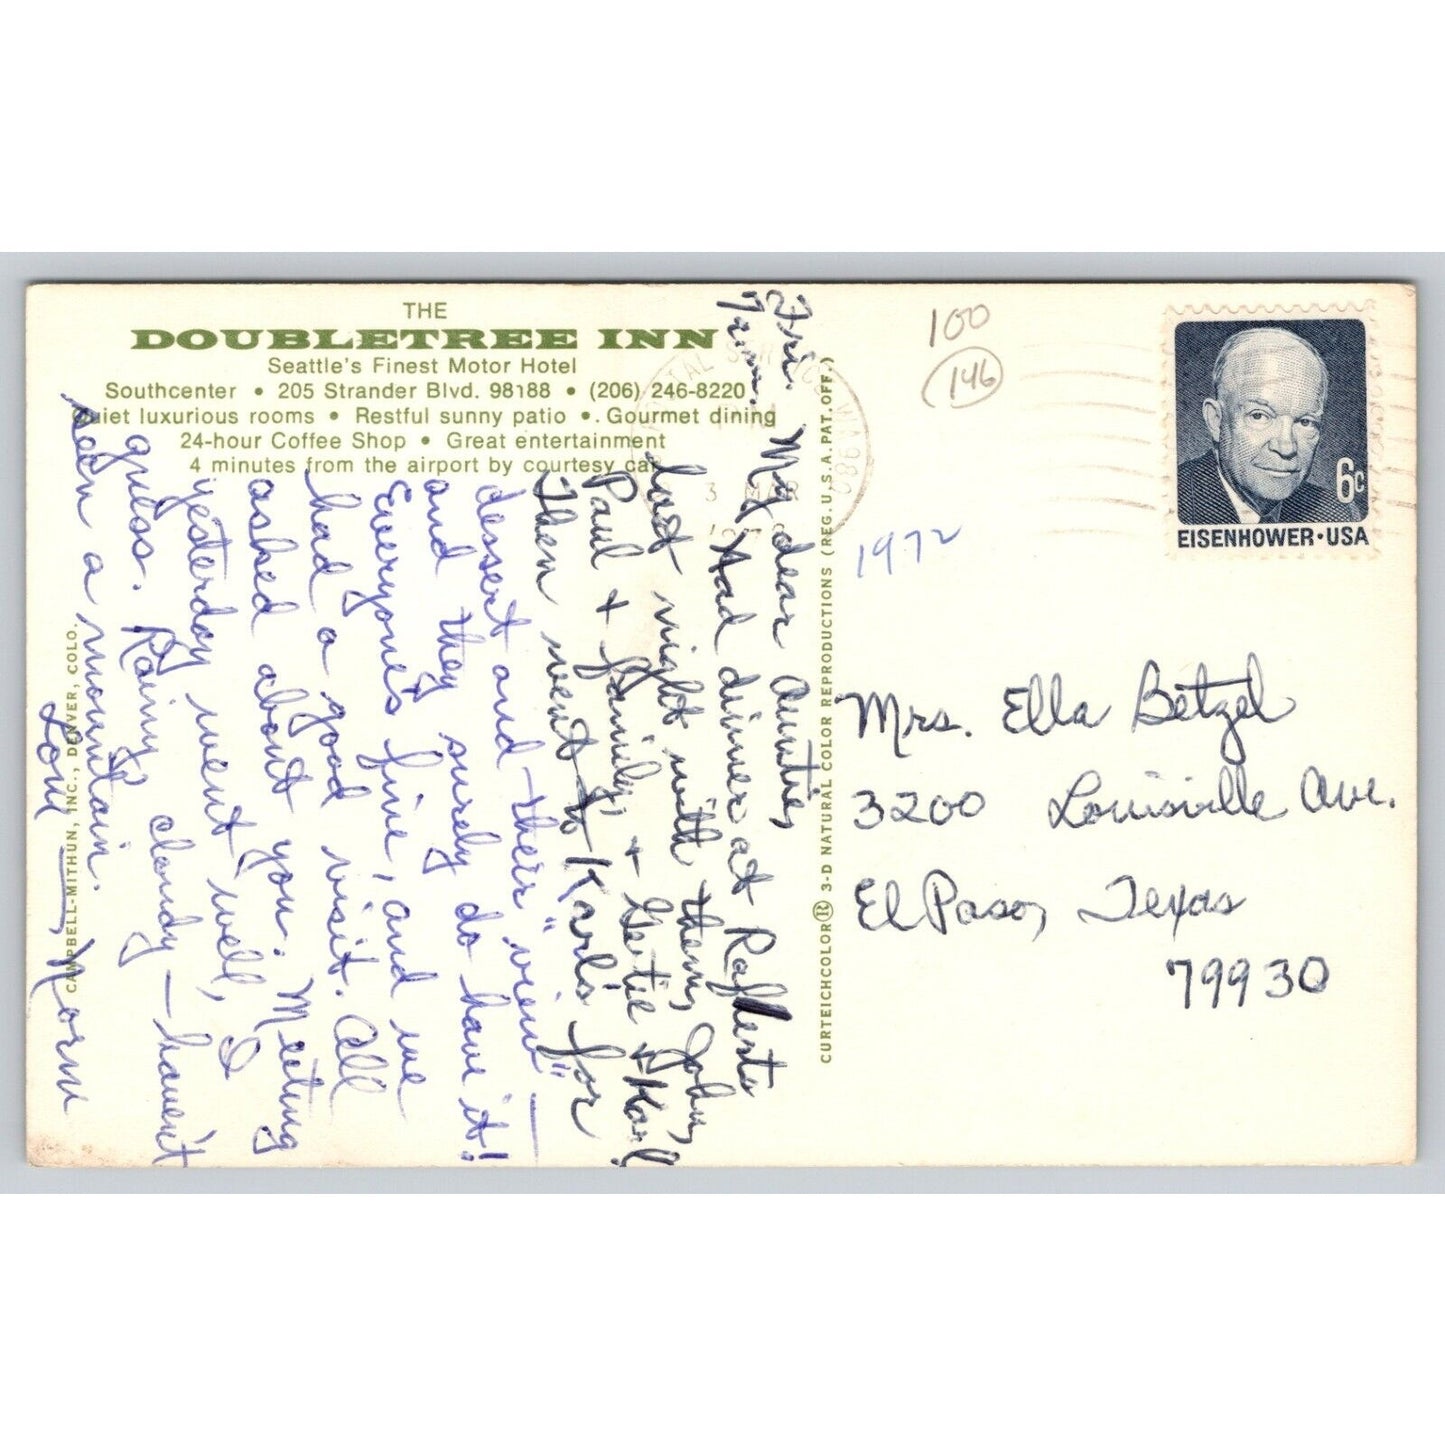 THE
DOUBLETREE INN
Seattle's Finest Motor Hotel
Southcenter • 205 Strander Blvd. 98188 • (206) 246-8220
Quiet luxurious rooms • Restful sunny patio • Gourmet dining
24-hour Coffee Shop • Great entertainment
4 minutes from the airport by courtesy car
Fri.
My dear Auntie,
Had dinner at
last night with them, John,
Paul + family, + Gertie + Karl!
Then went to Karl's for
dessert and "their view" —
and they surely do have it!
Everyone's fine, and we
had a good visit. All
asked about you. Meeting
yesterday went well, I
guess. Rainy cloudy — haven't
seen a mountain.
Love, — Norm
CAMPBELL-MITHUN, INC., DENVER, COLO.
CURTEICHCOLOR® 3-D NATURAL COLOR REPRODUCTIONS (REG. U.S.A. PAT. OFF.)
100
146
1972
6c
EISENHOWER•USA
Mrs. Ella Betzel
3200 Louisville Ave.
El Paso, Texas
79930